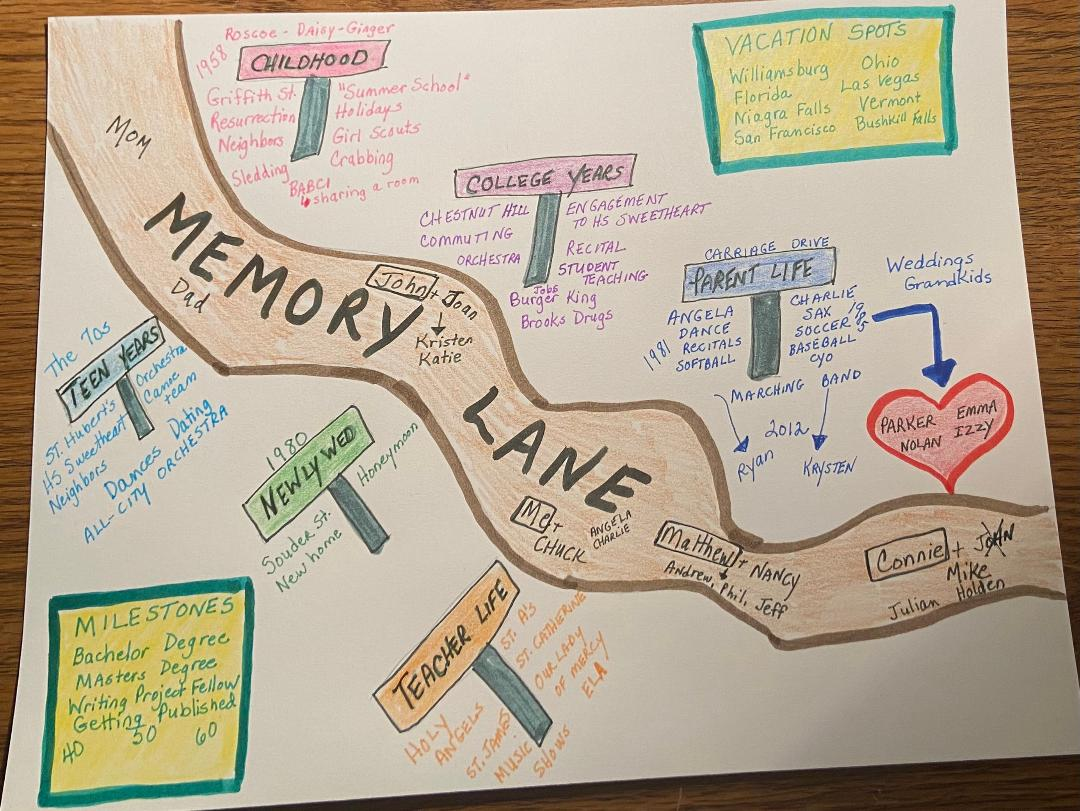 Roscoe - Daisy-Ginger
1958
CHILDHOOD
Griffith St.
Resurrection
Neighbors
Sledding
BABCI
"Summer School"
Holidays
Girl Scouts
Crabbing
sharing a room
VACATION SPOTS
Williamsburg
Florida
Niagra Falls
San Francisco
Ohio
Las Vegas
Vermont
Bushkill Falls
Mom
MEMORY
Dad
LANE
COLLEGE YEARS
CHESTNUT HILL
COMMUTING
ORCHESTRA
ENGAGEMENT
TO HS SWEETHEART
RECITAL
STUDENT
TEACHING
Jobs
Burger King
Brooks Drugs
John + Joan
Kristen
Katie
CARRIAGE DRIVE
PARENT LIFE
ANGELA
DANCE
RECITALS
SOFTBALL
1981
CHARLIE
SAX
SOCCER
BASEBALL
CYO
1985
MARCHING BAND
2012
Ryan
KRYSTEN
Weddings
Grandkids
PARKER
NOLAN
EMMA
IZZY
The 70s
TEEN YEARS
Orchestra
Canoe
team
ST. Hubert's
HS Sweetheart
Neighbors
Dances Dating
ALL-CITY ORCHESTRA
1980
NEWLYWED
Honeymoon
Souder St.
New home
Me +
CHUCK
ANGELA
CHARLIE
Matthew + NANCY
Andrew, Phil, Jeff
Connie + JOHN
Mike
Holden
Julian
TEACHER LIFE
HOLY
ANGELS
ST. JAMES
MUSIC
SHOWS
ST. A's
ST. CATHERINE
OUR LADY
OF MERCY
ELA
MILESTONES
Bachelor Degree
MAsters Degree
Writing Project Fellow
Getting Published
40 50 60